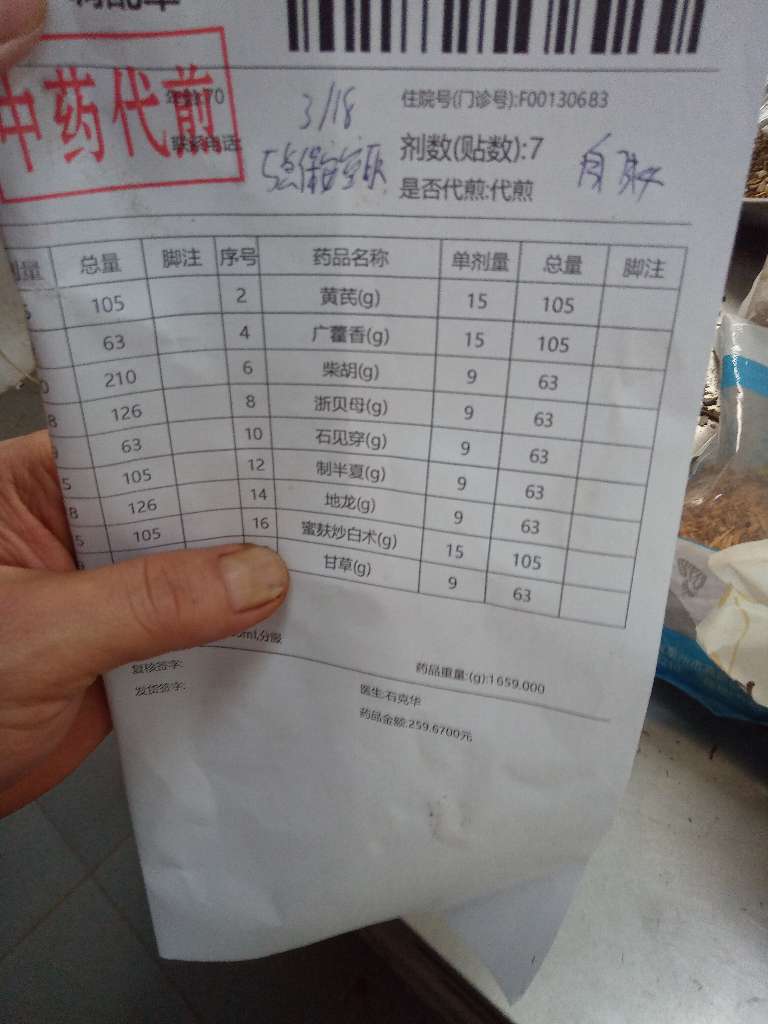 中药代煎
年龄:70
3/18
住院号(门诊号):F00130683
联系电话:
剂数(贴数):7
是否代煎:代煎
剂量 总量 脚注 序号 药品名称 单剂量 总量 脚注
105 2 黄芪(g) 15 105
63 4 广藿香(g) 15 105
210 6 柴胡(g) 9 63
126 8 浙贝母(g) 9 63
63 10 石见穿(g) 9 63
105 12 制半夏(g) 9 63
126 14 地龙(g) 9 63
105 16 蜜麸炒白术(g) 15 105
甘草(g) 9 63
0ml,分服
复核签字: 药品重量:(g):1659.000
发货签字: 医生:石克华
药品金额:259.6700元